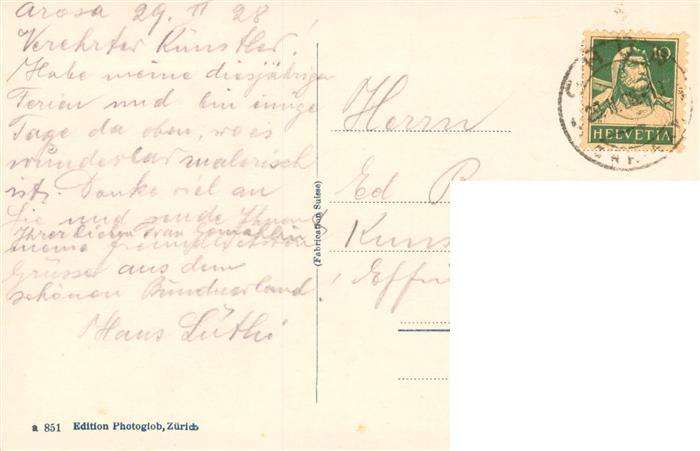 Arosa 29. II 28
Verehrter Künstler!
Habe meine diesjährigen
Ferien und bin einige
Tage da oben, wo es
wunderbar malerisch
ist. Denke viel an
Sie und sende Ihnen &
Ihrer lieben Frau Gemahlin
meine freundlichsten
Grüsse aus dem
schönen Bündnerland
Hans Lüthi
a 851 Edition Photoglob, Zürich
(Fabrication Suisse)
Herrn
Ed
Kuns
Effri
10
HELVETIA